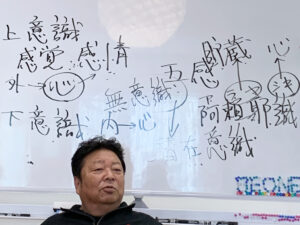 上意識
感覚 感情
外→心→
下意識
無意識
内→心
五感
潜在意識
貯蔵 心
阿賴耶識